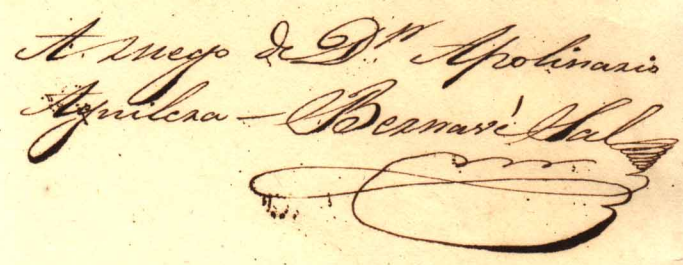 A. ruego de Dn. Apolinario
Aguilera – Bernavé Sal